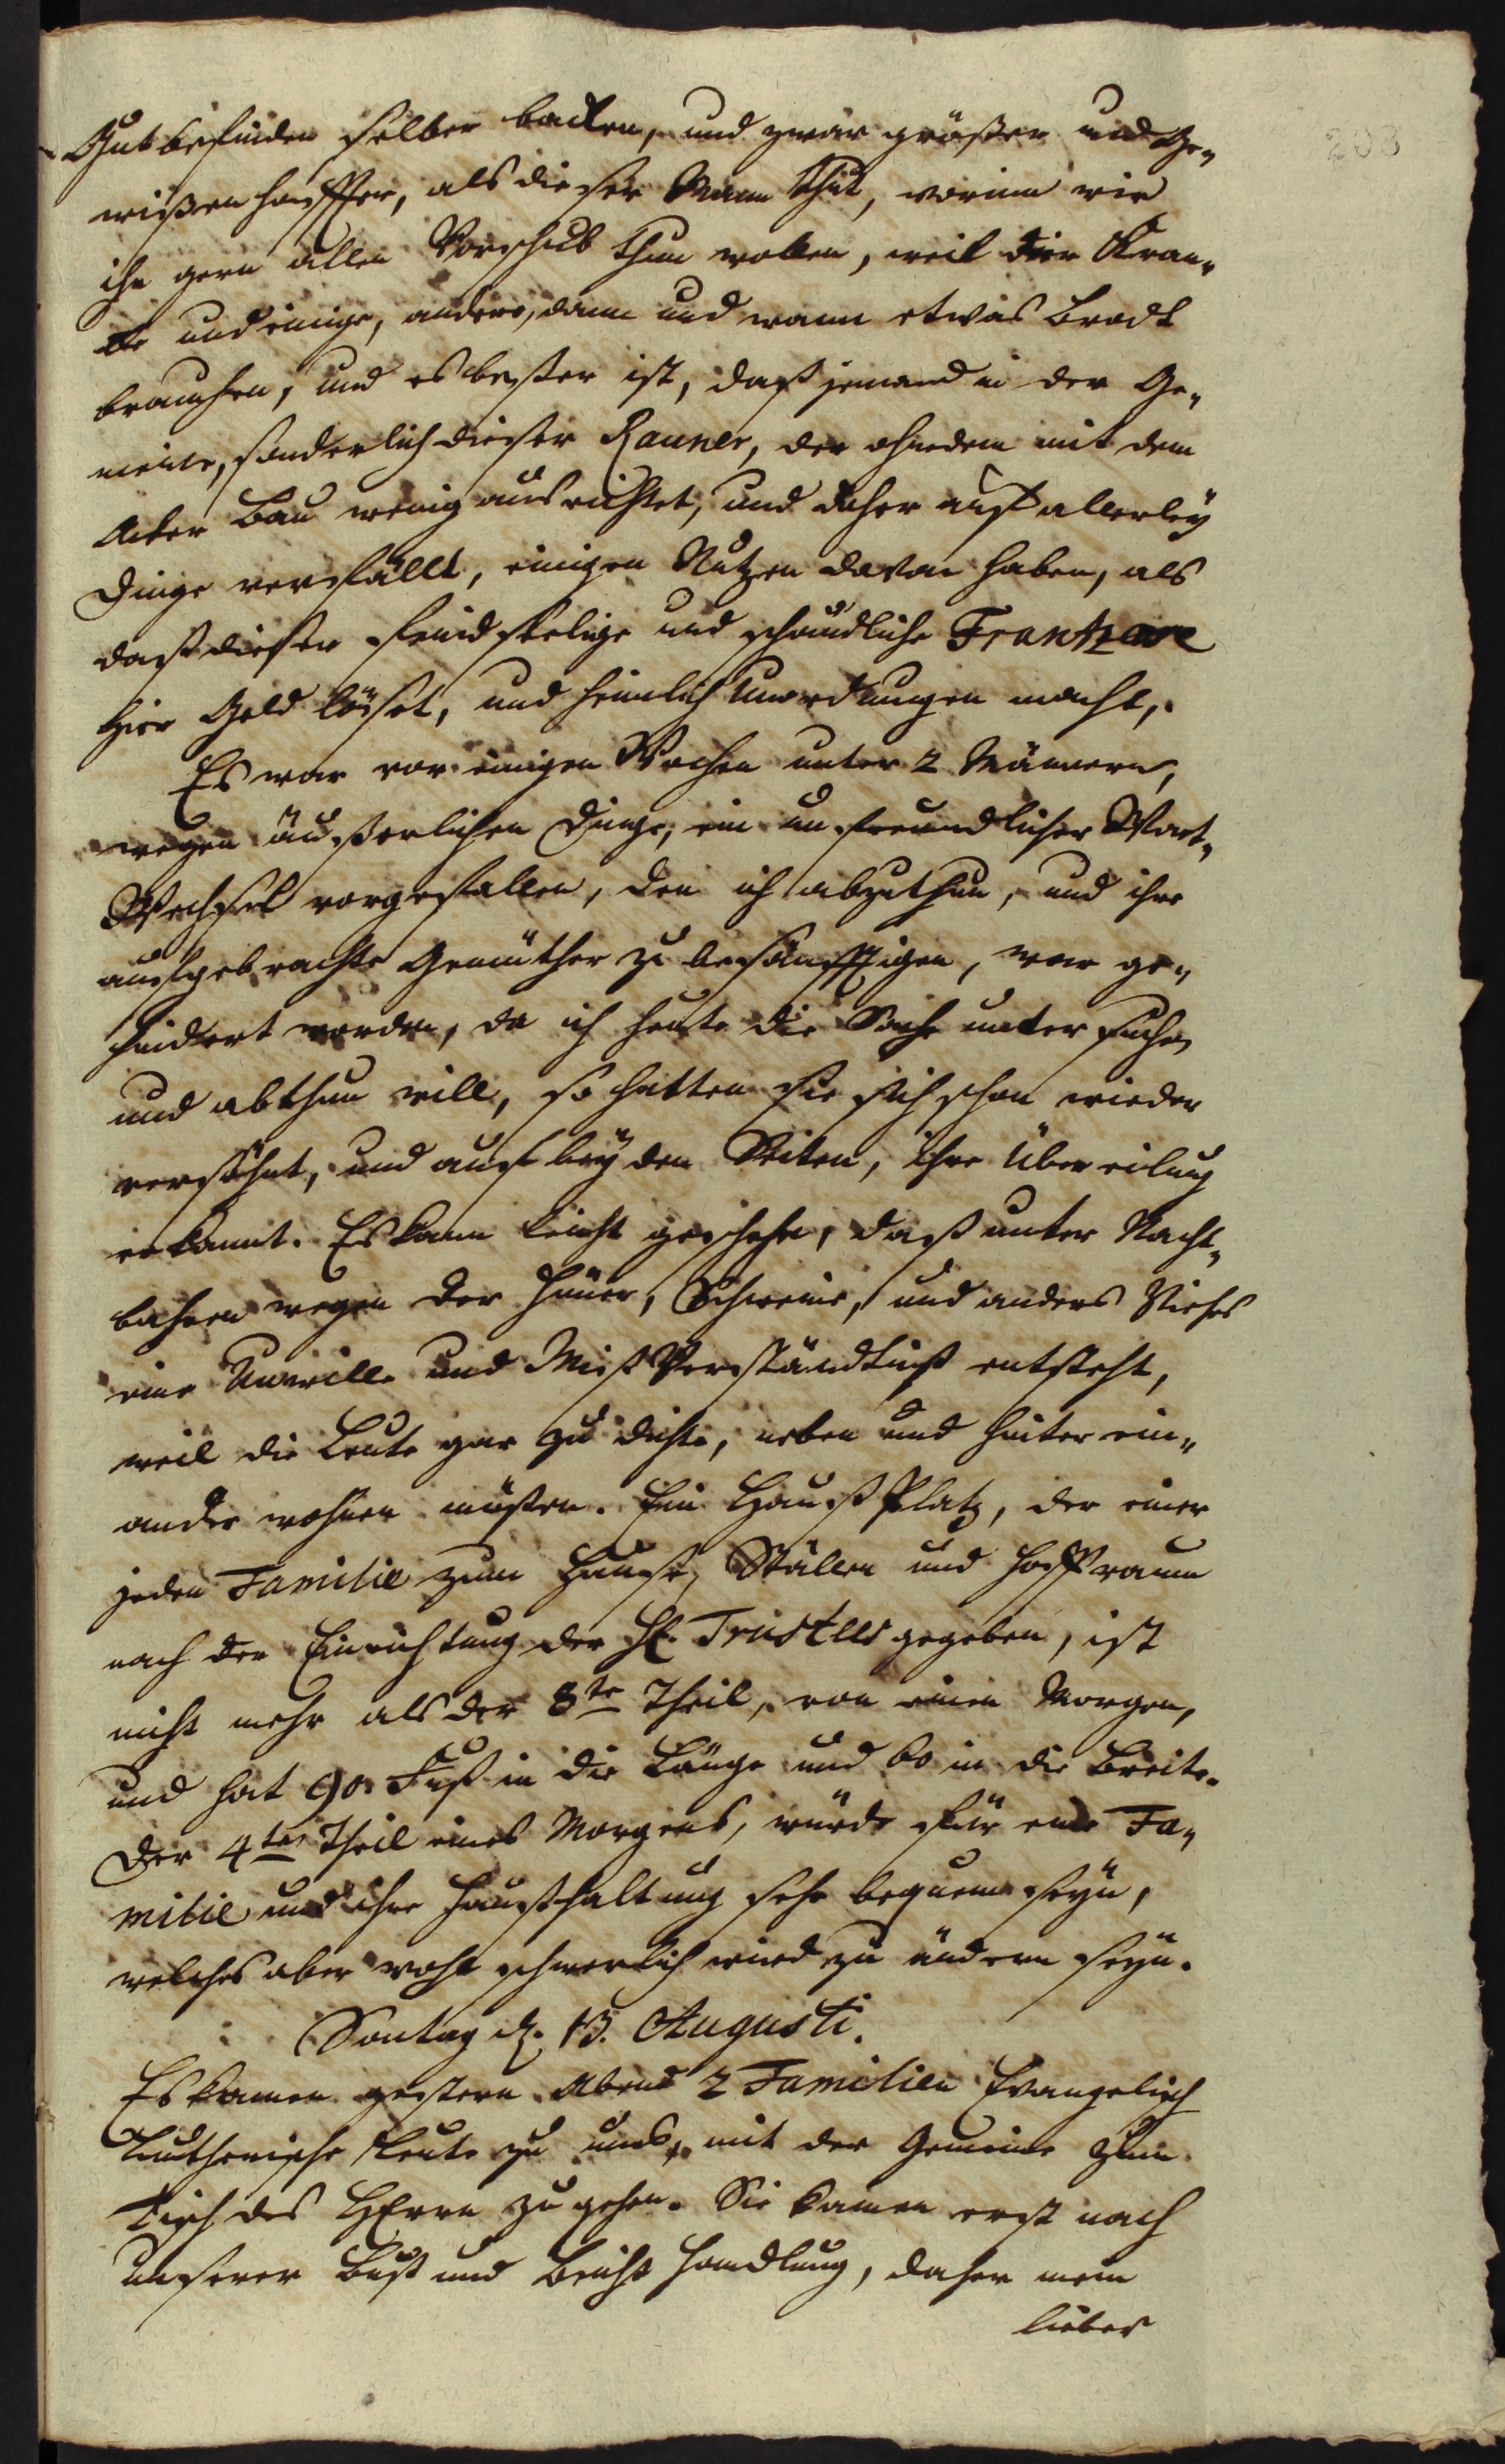 208
Gutbefinden selber backen, und zwar größer und Ge„
wißenhaffter, als dieser Mann thut, worinn wir
ihn gern allen Vorschub thun wollen, weil die Kran„
ke und einige, andere, dann und wann etwas Brodt
brauchen, und es beßer ist, daß jemand in der Ge„
meine, sonderlich dieser Rauner, der ohnedem mit dem
Acker Bau wenig ausrichtet, und daher auf allerley
Dinge verfällt, einigen Nutzen davon haben, als
daß dieser feindseelige und schändliche Frantzose
hier Geld löset, und heimlich Unordnungen macht,.
Es war vor einigen Wochen unter 2 Männern,
wegen äußerlichen Dinge, ein unfreundlicher Wort„
Wechsel vorgefallen, den ich abzuthun, und ihre
aufgebrachte Gemüther zu besänfftigen, war ge„
hindert worden, da ich heute die Sache untersuchen
und abthun will, so hatten sie sich schon wieder
versöhnt, und auf beyden Seiten, ihre Übereilung
erkannt. Es kann leicht geschehen, daß unter Nacht„
bahren wegen der Hüner, Schweine, und anders Viehes
eine Unwille und Miß Verständniß entsteht,
weil die Leute gar zu dichte, neben und hinter ein„
ander wohnen müßen. Ein Hauß Platz, der einer
jeden Familie zum Hause, Ställen und Hoffraum
nach der Einrichtung der H. Trustees gegeben, ist
nicht mehr als der 8te Theil, von einen Morgen,
und hat 90. Fuß in die Länge und 60 in die Breite.
Der 4te Theil eines Morgens, würde für eine Fa„
milie und ihre Haußhaltung sehr bequem seyn,
welches aber wohl schwerlich wird zu ändern seyn.
Sontag d. 13. Augusti.
Es kamen gestern Abend 2 Familien Evangelisch
Lutherische Leute zu uns, mit der Gemeine zum
Tisch des HErrn zu gehen. Sie kamen erst nach
unserer Buß und Beicht Handlung, daher mein
lieber